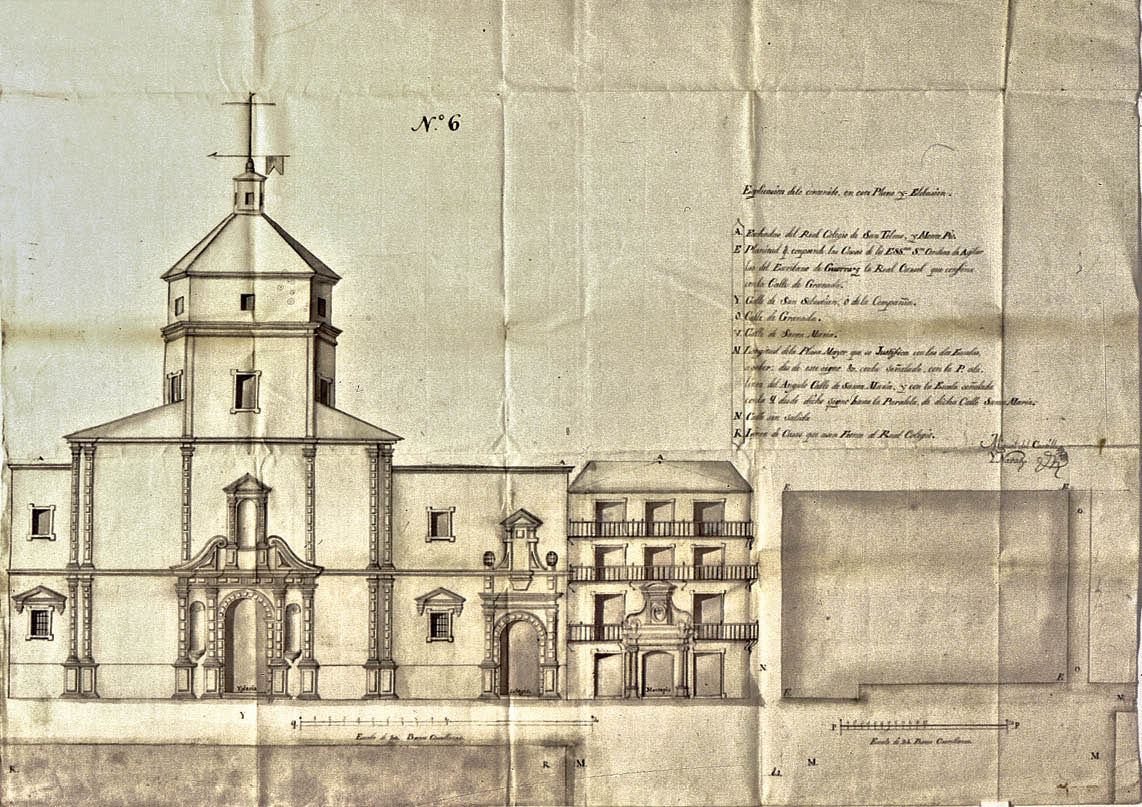 N.º 6
Explicacion delo contenido, en este Plano y Elebacion.
A. Fachadas del Real Colegio de San Telmo, y Monte Pio.
E Planitud q. comprende las Casas de la ESS.ma S.ra Condesa de Aguilar
las del Escribano de Guerra y la Real Carcel que confina
conla Calle de Granada.
Y. Calle de San Sebastian, ò dela Compañia.
O. Calle de Granada.
Calle de Santa Maria.
M. Longitud dela Plaza Mayor que se Justifica con las dos Escalas,
asaber: desde este signo
linea del Angulo Calle de Santa Maria, y con la Escala señalada
conla q. desde dicho signo hasta la Paralela, de dicha Calle Santa Maria.
N. Calle sin salida
K. Linea de Casas que asen Frente al Real Colegio.
Miguel del Castillo
A A A
E. E.
O.
Yglesia Colegio Montepio
N. E. E. O.
M.
Y q P P
Escala de Pies Castellanos.
Escala de Pies Castellanos.
K. R. M. M. M.